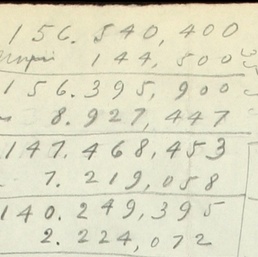 156. 540, 400
144, 500
156. 395, 900
8. 927, 447
147. 468, 453
7. 219, 058
140. 249, 395
2. 224, 072